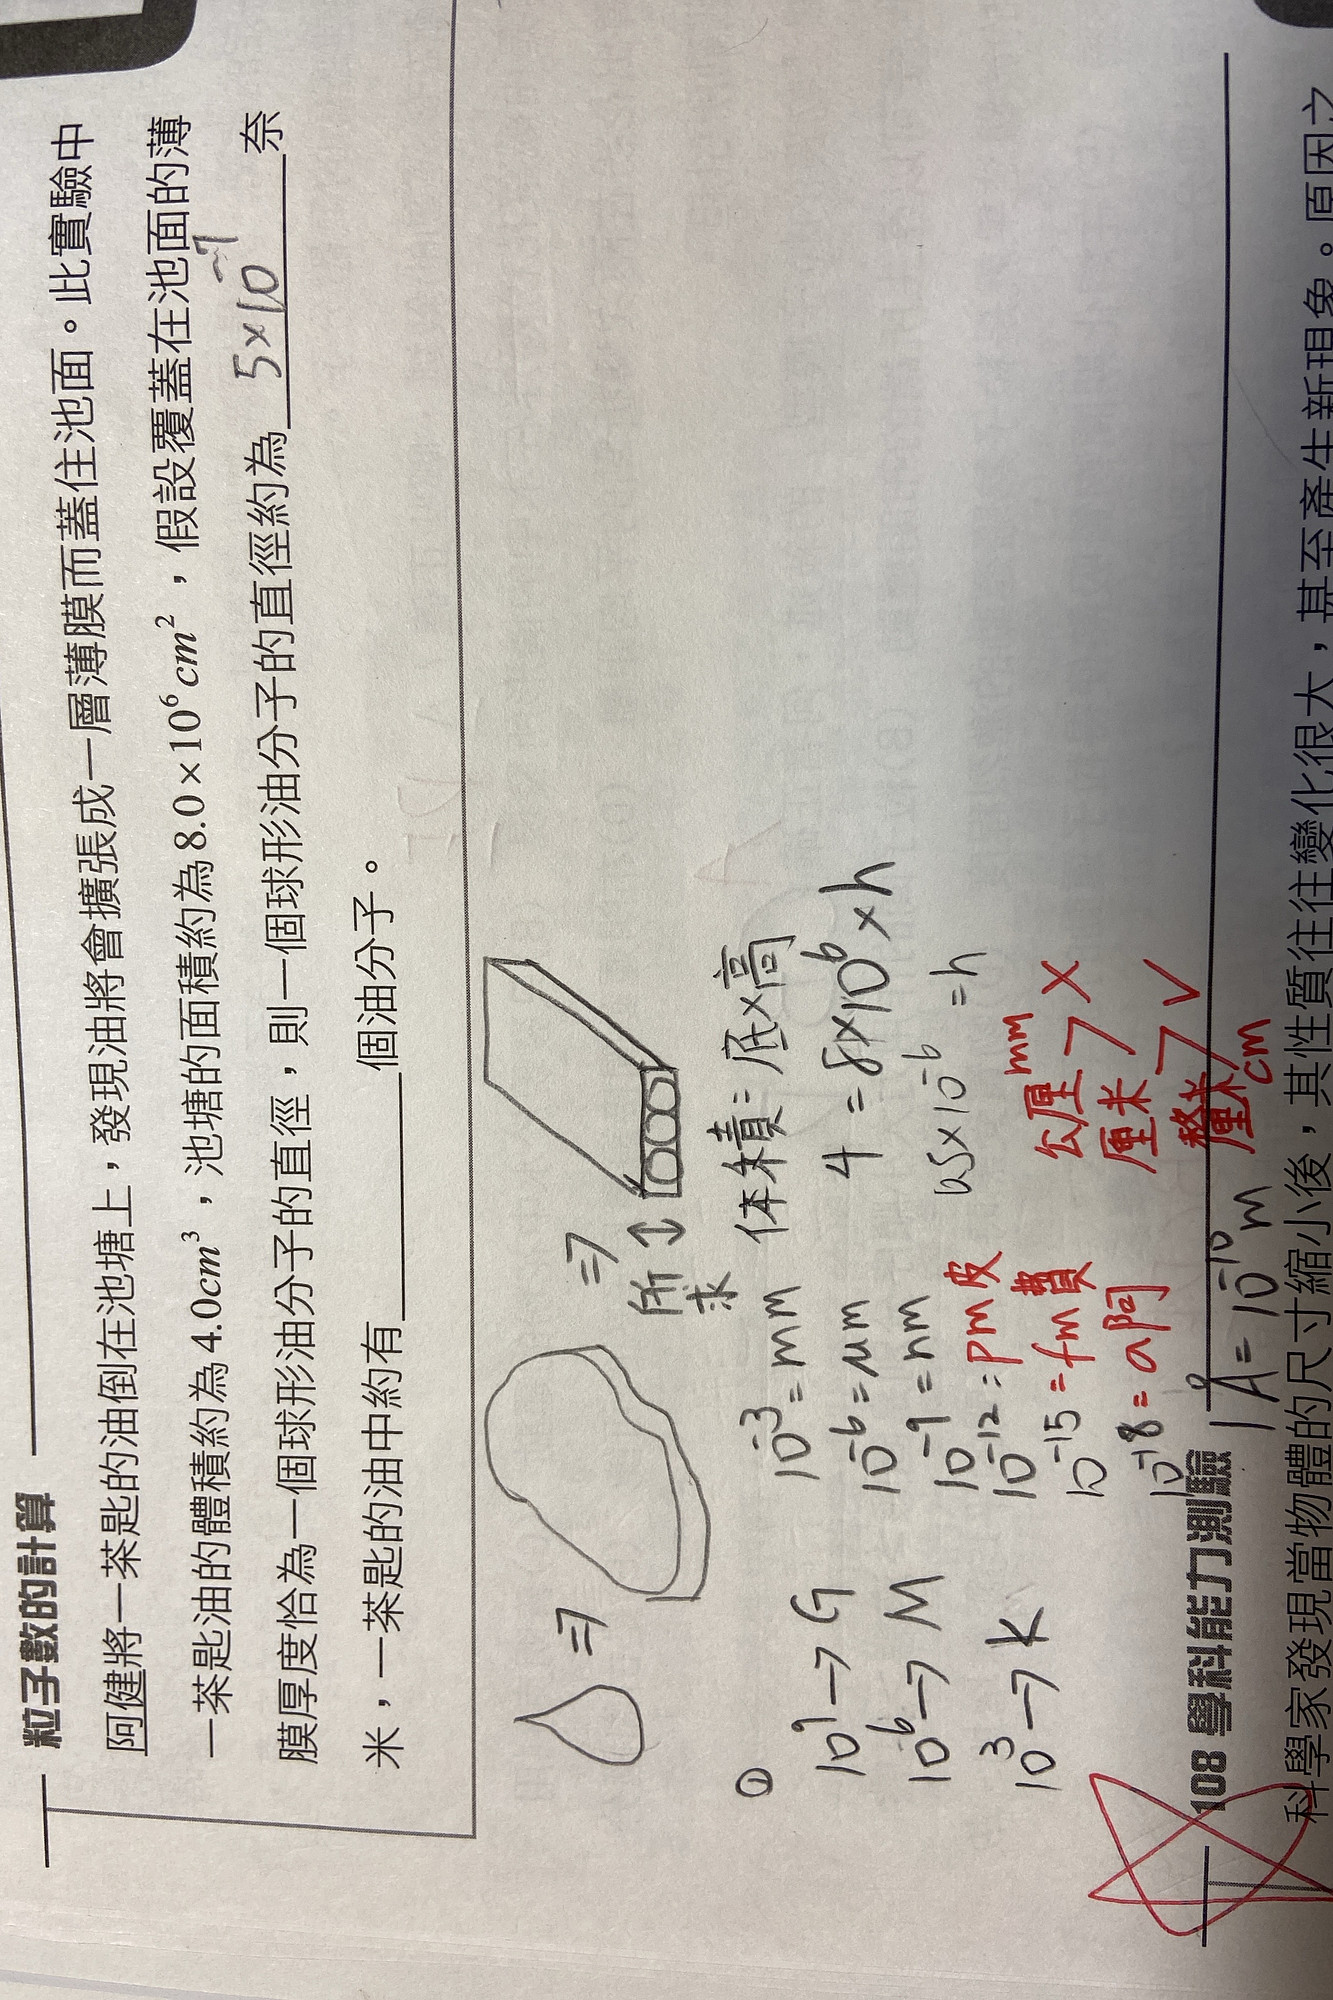 粒子數的計算
阿健將一茶匙的油倒在池塘上，發現油將會擴張成一層薄膜而蓋住池面。此實驗中
一茶匙油的體積約為4.0cm³，池塘的面積約為8.0×10⁶cm²，假設覆蓋在池面的薄
膜厚度恰為一個球形油分子的直徑，則一個球形油分子的直徑約為 5×10⁻⁷ 奈
米，一茶匙的油中約有________個油分子。
⇒
⇒
所求
①
10⁹→G
10⁶→M
10³→K
10⁻³=mm
10⁻⁶=μm
10⁻⁹=nm
10⁻¹²=pm皮
10⁻¹⁵=fm費
10⁻¹⁸=a阿
1Å=10⁻¹⁰m
体積=底×高
4=8×10⁶×h
0.5×10⁻⁶=h
公厘mm
厘米
釐米cm
108 學科能力測驗
科學家發現當物體的尺寸縮小後，其性質往往變化很大，甚至產生新現象。原因之